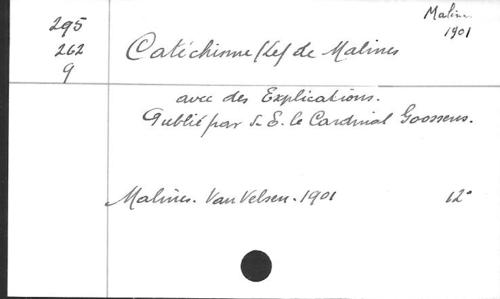 295
262
9
Malin.
1901
Catéchisme (Le) de Malines
avec des Explications.
Publié par S. E. le Cardinal Goossens.
Malines. Van Velsen. 1901 12°